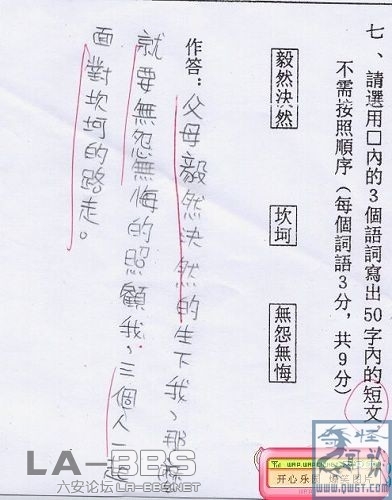 七、請選用□內的3個語詞寫出50字內的短文
不需按照順序（每個詞語3分，共9分）
毅然決然
坎坷
無怨無悔
作答：父母毅然決然的生下我，那麼
就要無怨無悔的照顧我，三個人一起
面對坎坷的路走。
LA-BBS
六安论坛 LA-BBS.NET
开心乐园